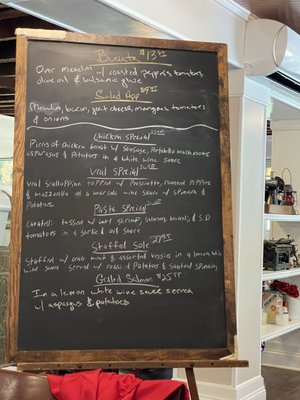 Burrata $13.95
Over mesculin w/ roasted peppers, tomatoes,
olive oil & balsamic glaze
Salad App
Mesculin, bacon, goat cheese, mangos, tomatoes
& onions
Chicken Special
Pieces of chicken breast w/ sausage, Portobello mushrooms
asparagus & Potatoes in a white wine sauce
Veal Special
Veal Scaloppine topped w/ Prosciutto, roasted Peppers
& mozzarella in a white wine sauce w/ spinach &
Potatoes
Pasta Special
tossed w/ shrimp, Salmon, & S.D.
tomatoes in a garlic & oil sauce
Stuffed Sole
Stuffed w/ crab meat & assorted veggies in a lemon white
wine sauce served w/ roast Potatoes & sauteed Spinach
Grilled Salmon $25.95
In a lemon white wine sauce served
w/ asparagus & potatoes